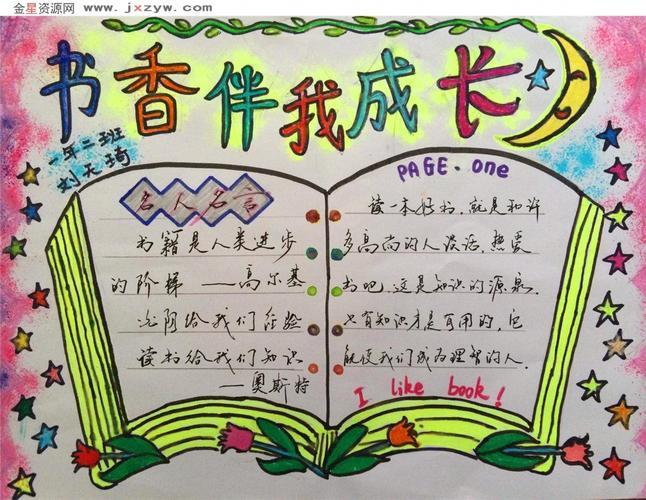 金星资源网
www.jxzyw.com
书香伴我成长
一年二班
刘天琦
名人名言
书籍是人类进步
的阶梯——高尔基
沈阴给我们经验
读书给我们知识
——奥斯特
PAGE.one
读一本好书,就是和许
多高尚的人谈话,热爱
书吧,这是知识的源泉.
只有知识才是有用的,它
能使我们成为理智的人.
I like book!